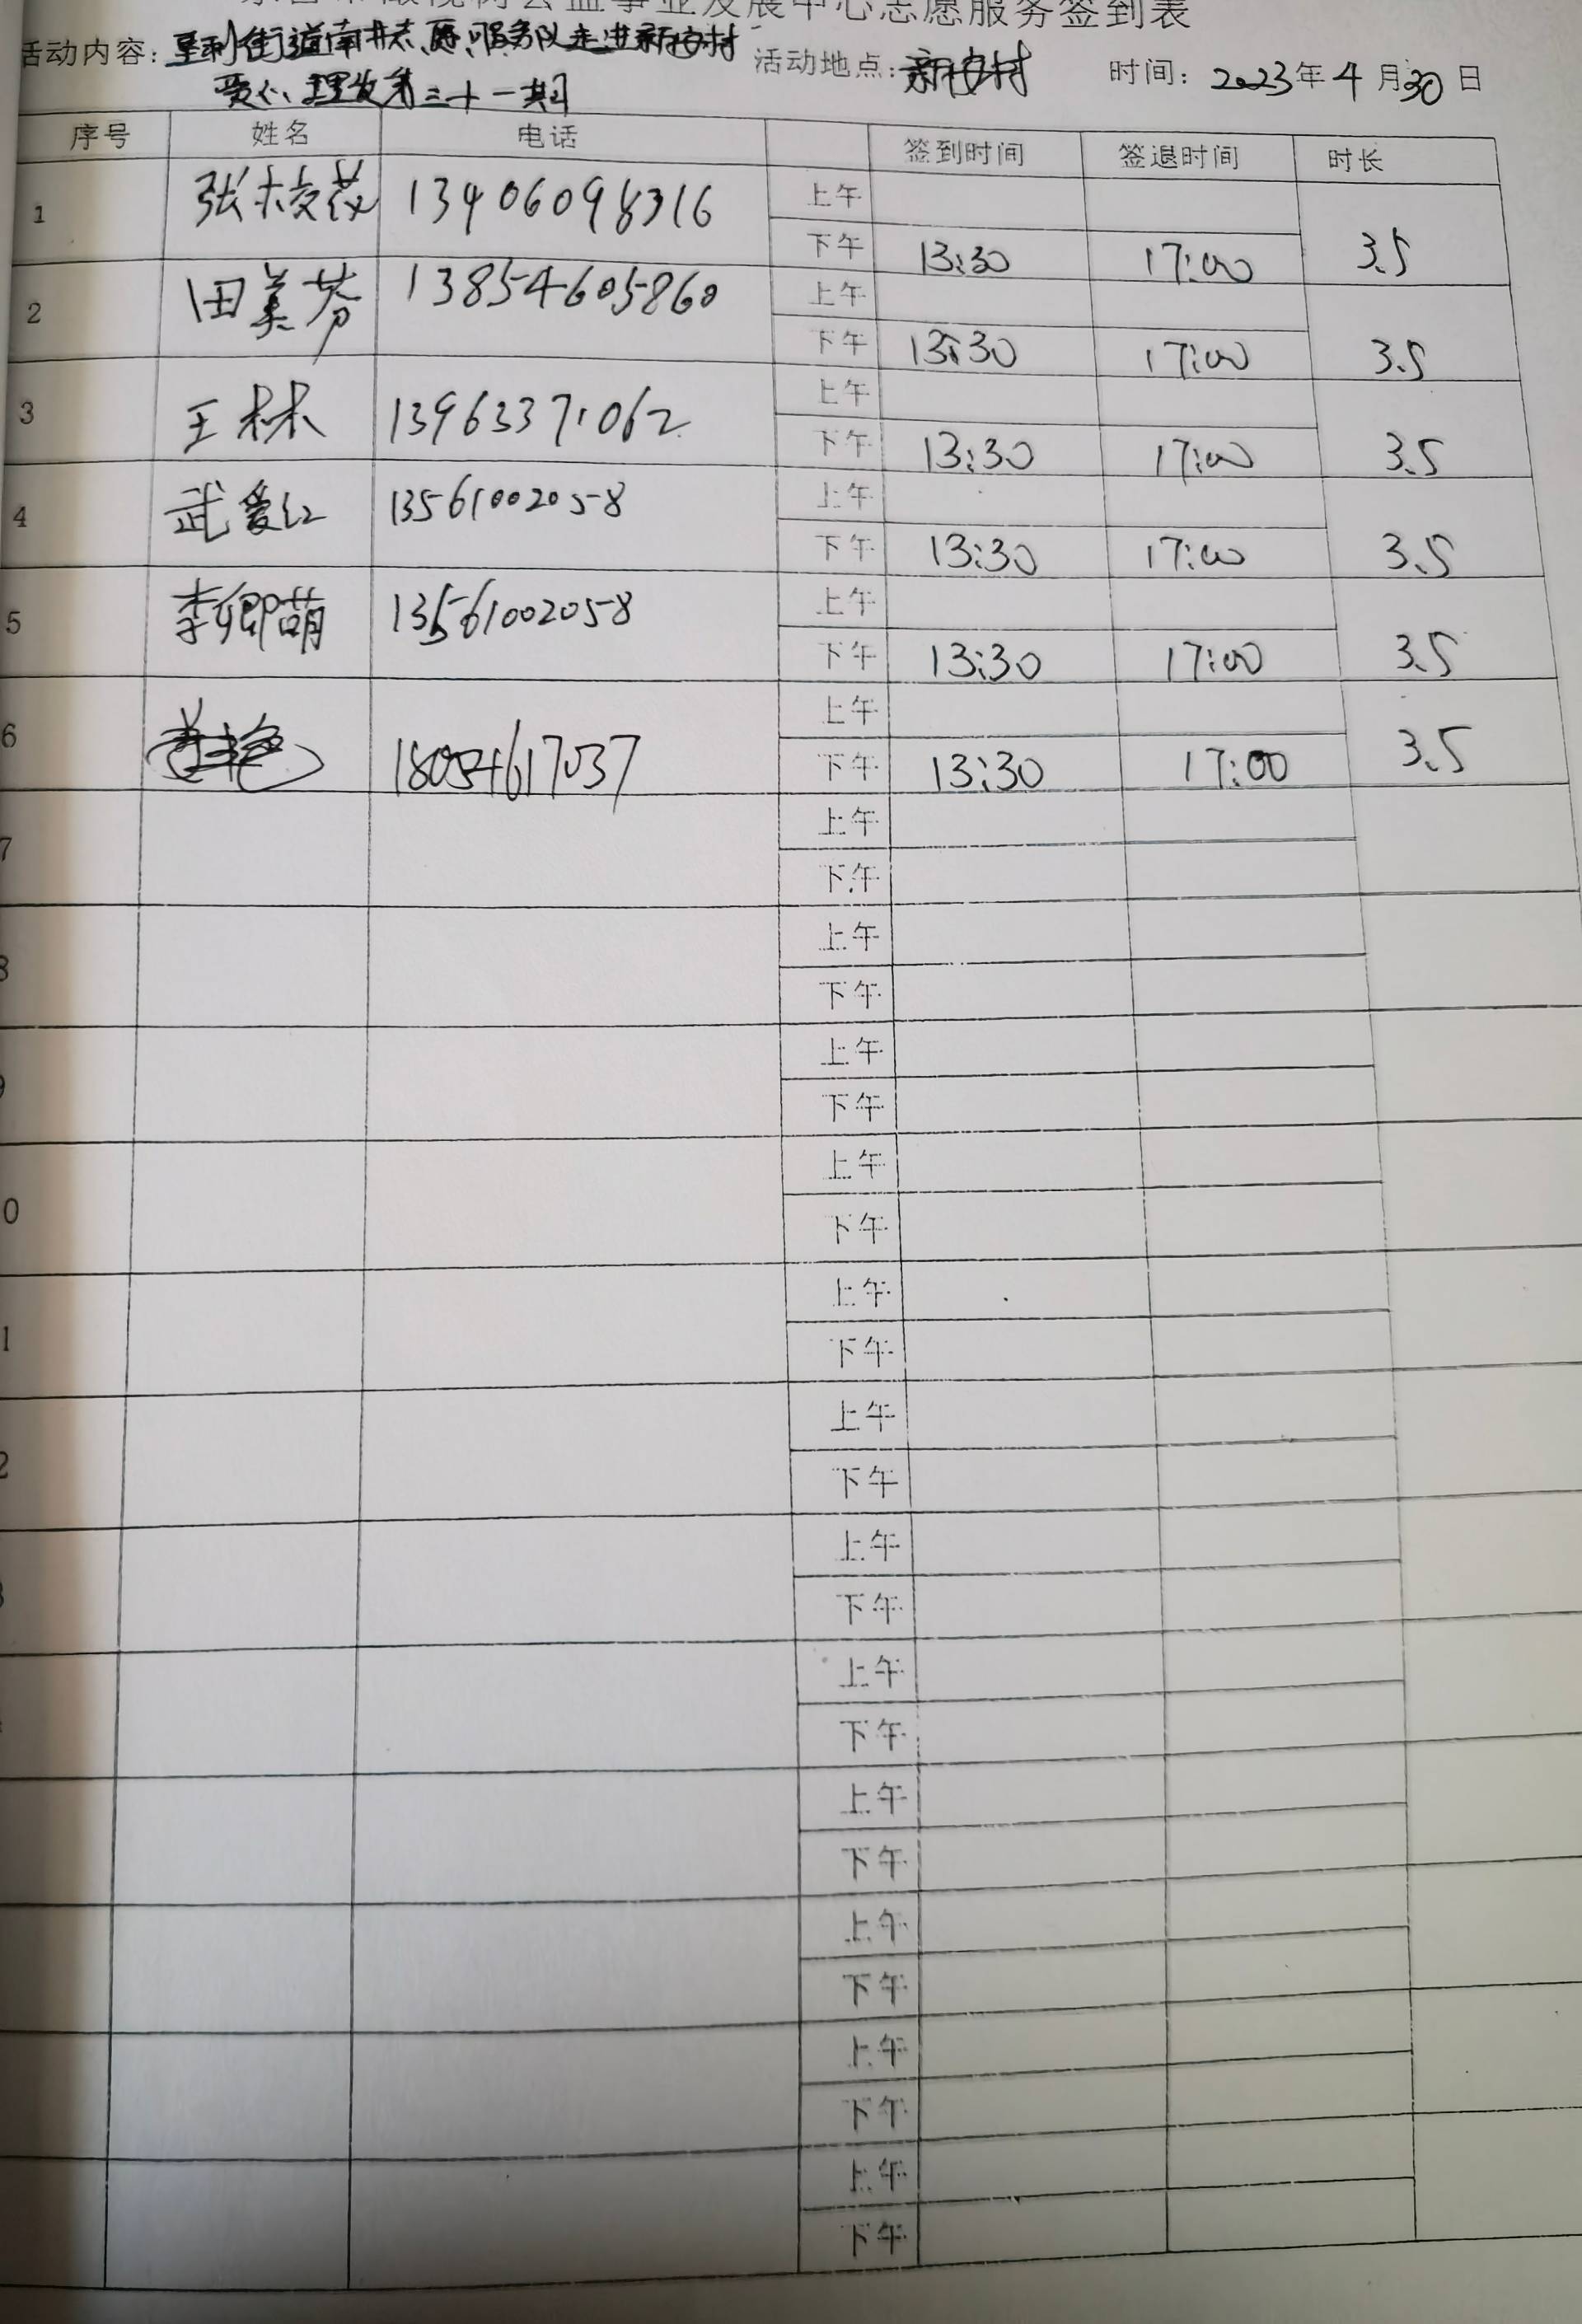 公益事业发展中心志愿服务签到表
活动内容: 垦利街道南井志愿服务队走进新安村 活动地点: 新安村 时间: 2023年4月30日
爱心理发第三十一期
序号 姓名 电话 签到时间 签退时间 时长
1 张枝茂 13406098316 上午
下午 13:30 17:00 3.5
2 田美芬 13854605860 上午
下午 13:30 17:00 3.5
3 王林 13963371062 上午
下午 13:30 17:00 3.5
4 武爱红 13561002058 上午
下午 13:30 17:00 3.5
5 李卿萌 13561002058 上午
下午 13:30 17:00 3.5
6 18054617037 上午
下午 13:30 17:00 3.5
7 上午
下午
8 上午
下午
9 上午
下午
0 上午
下午
1 上午
下午
2 上午
下午
3 上午
下午
上午
下午
上午
下午
上午
下午
上午
下午
上午
下午